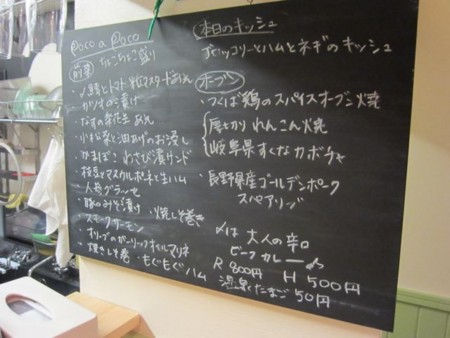 Poco a Poco
ちょこちょこ盛り
前菜
・〆鯖とトマト粒マスタードあえ
・カツオの漬け
・なすの落花生あえ
・小松菜と油あげのお浸し
・かまぼこ わさび漬サンド
・枝豆とマスカルポーネと生ハム
・人参グラッセ
・豚のみそ漬け
・スモークサーモン
・オリーブのガーリックオイルマリネ
・焼きしそ巻 ・もぐもぐハム
・焼しそ巻き
本日のキッシュ
ズッコリーとハムとネギのキッシュ
オーブン
・つくば鶏のスパイスオーブン焼
厚切り れんこん焼
岐阜県すくなカボチャ
・長野県産ゴールデンポーク
スペアリブ
〆は 大人の辛口
ビーフカレー
R 800円 H 500円
温泉たまご 50円